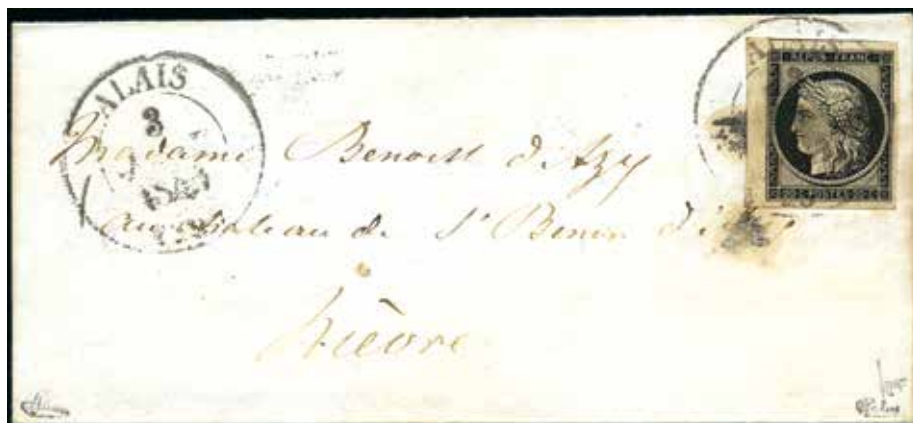 ALAIS
3
REPUB. FRANC
20 C POSTES 20 C
Madame Benoist d'Azy
au chateau de St Benin d'Azy
Nièvre